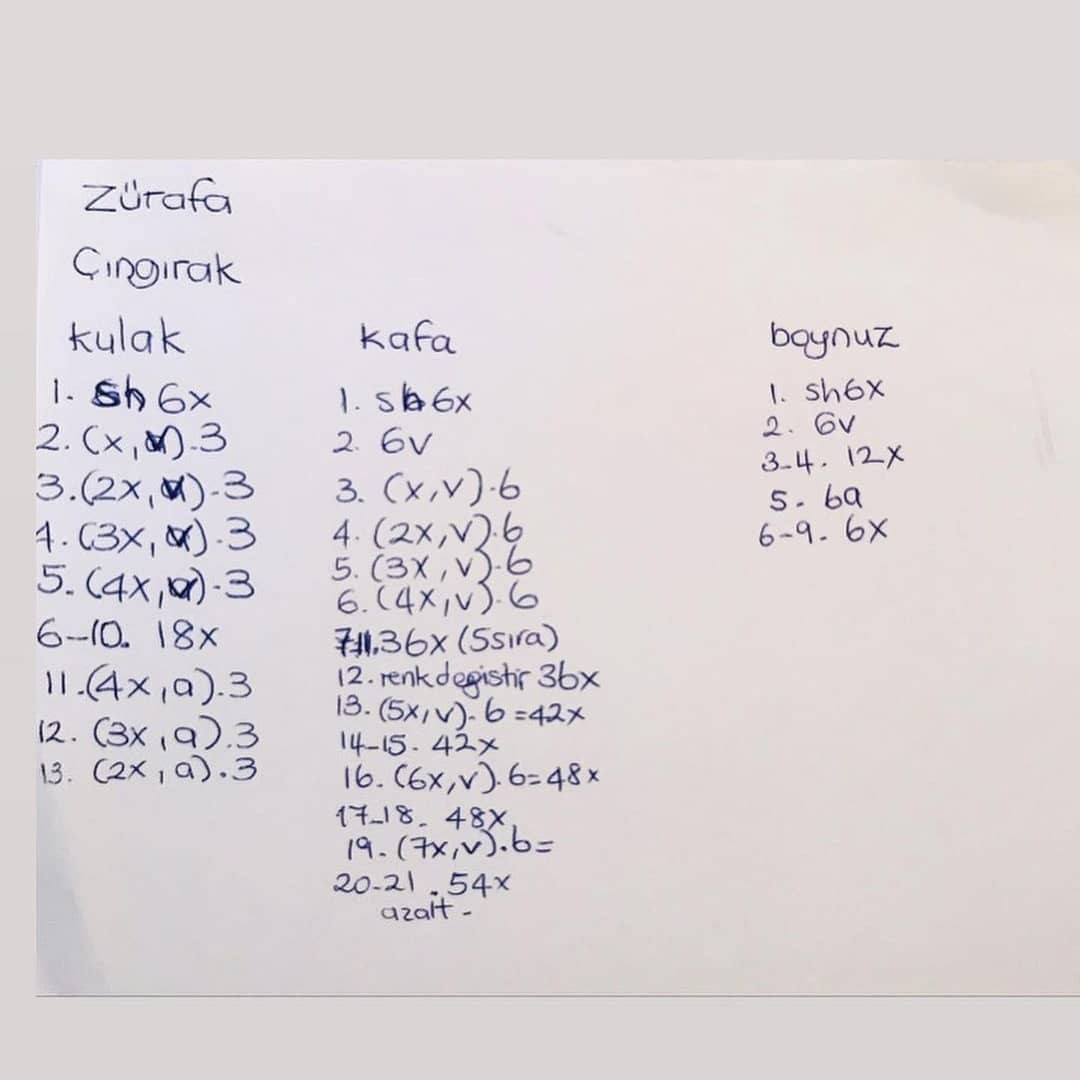 Zürafa
Çıngırak
kulak
1. sh 6x
2. (x,v).3
3.(2x,v).3
4.(3x,v).3
5.(4x,v).3
6-10. 18x
11.(4x,a).3
12. (3x,a).3
13. (2x,a).3
kafa
1. sh6x
2. 6v
3. (x,v).6
4. (2x,v).6
5. (3x,v).6
6. (4x,v).6
7-11.36x (5sıra)
12. renk degistir 36x
13. (5x,v).6=42x
14-15. 42x
16. (6x,v).6=48x
17-18. 48x
19. (7x,v).6=
20-21. 54x
azalt-
boynuz
1. sh6x
2. 6v
3-4. 12x
5. 6a
6-9. 6x